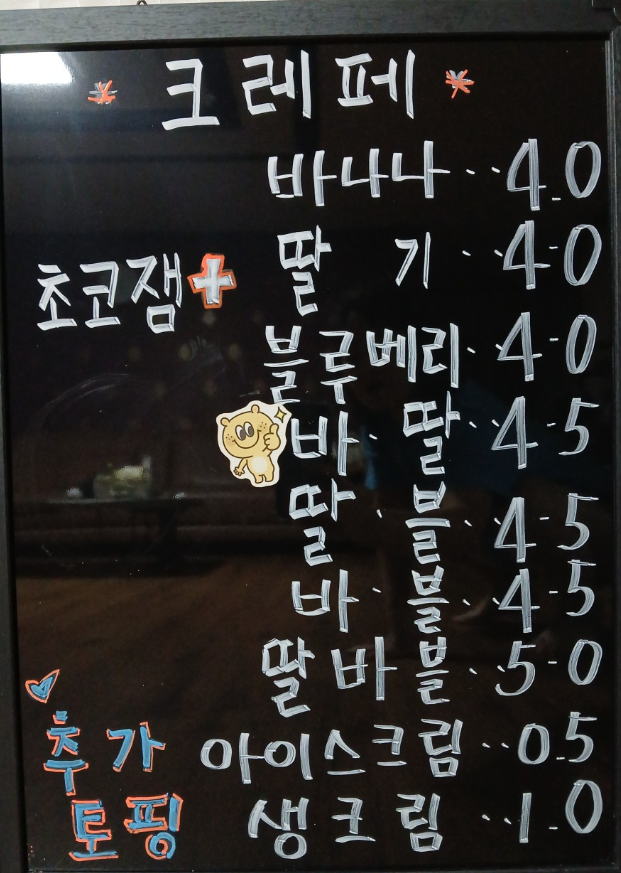 * 크레페 *
바나나··4.0
초코잼+ 딸 기··4-0
블루베리·4-0
바·딸··4-5
딸·블··4-5
바·블··4-5
딸바블··5-0
추가 아이스크림··0.5
토핑 생크림··1.0